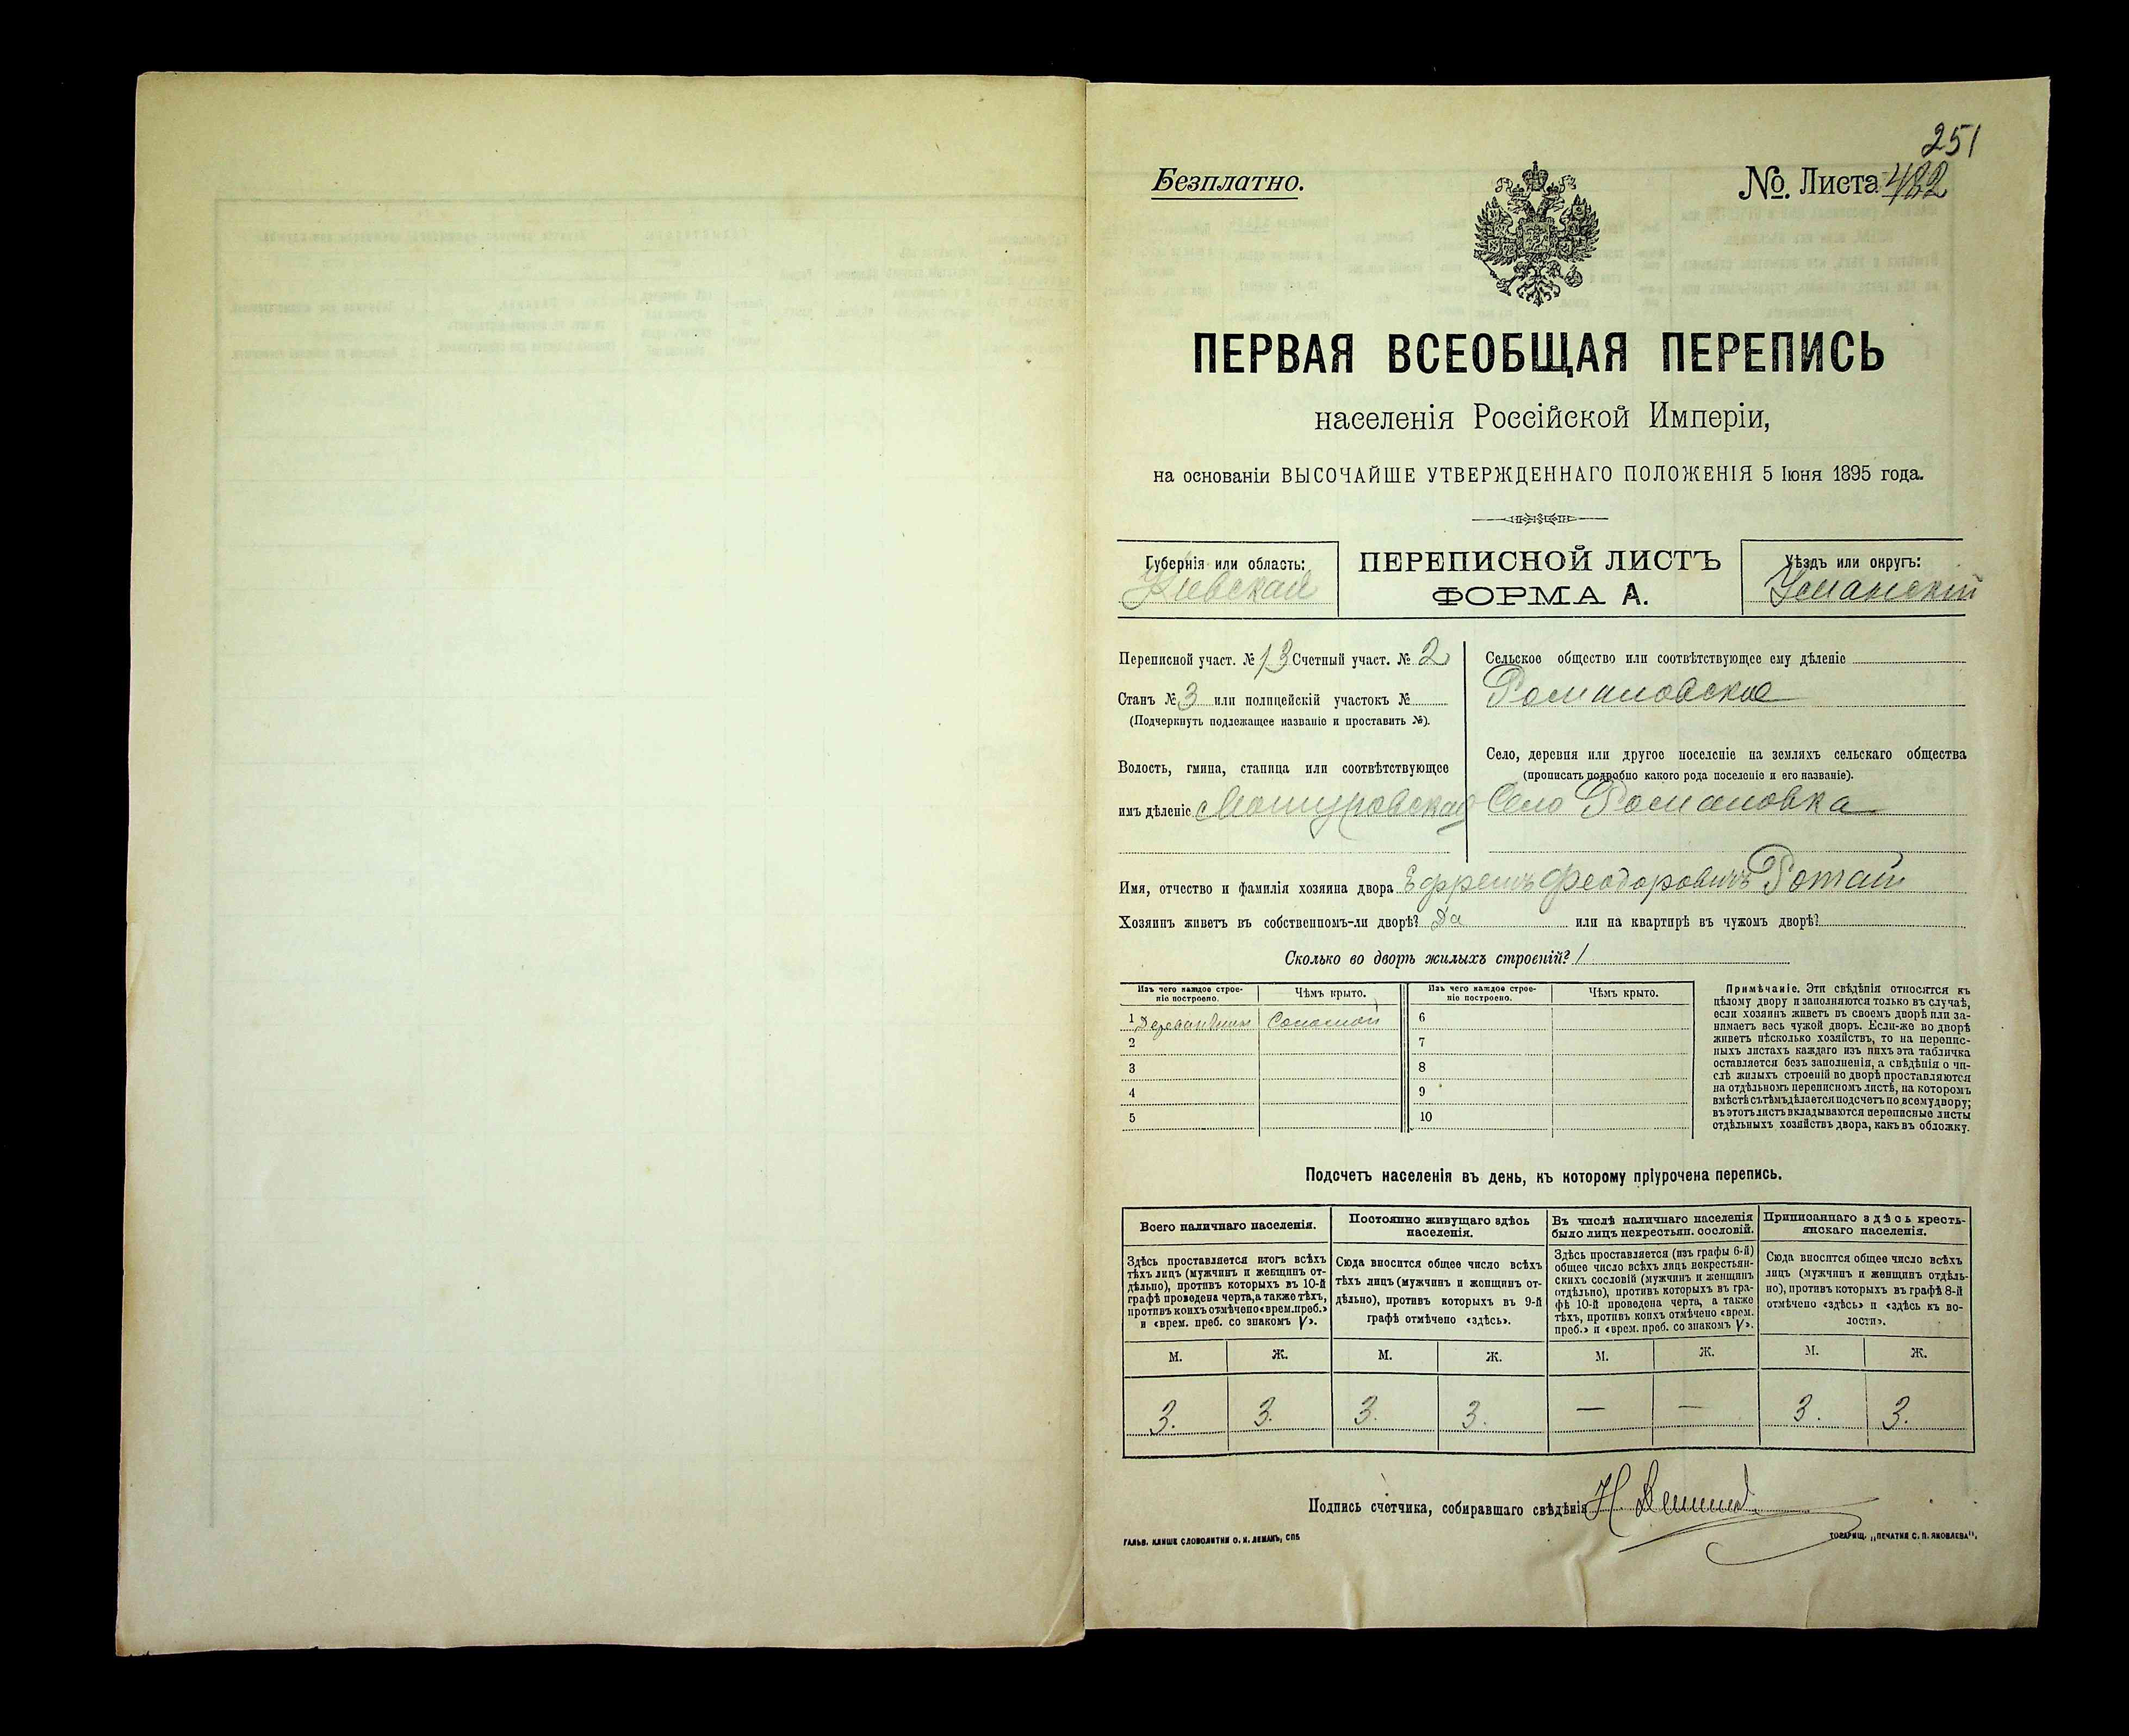 251
Безплатно.
№. Листа 482
ПЕРВАЯ ВСЕОБЩАЯ ПЕРЕПИСЬ
населенія Россійской Имперіи,
на основаніи ВЫСОЧАЙШЕ УТВЕРЖДЕННАГО ПОЛОЖЕНІЯ 5 Іюня 1895 года.
Губернія или область:
Кіевская
ПЕРЕПИСНОЙ ЛИСТЪ
ФОРМА А.
Уѣздъ или округъ:
Уманскій
Переписной участ. № 13 Счетный участ. № 2
Станъ № 3 или полицейскій участокъ №
(Подчеркнуть подлежащее названіе и проставить №).
Волость, гмина, станица или соотвѣтствующее
имъ дѣленіе
Сельское общество или соотвѣтствующее ему дѣленіе
Романовское
Село, деревня или другое поселеніе на земляхъ сельскаго общества
(прописать подробно какого рода поселеніе и его названіе).
Село Романовка
Имя, отчество и фамилія хозяина двора Ефремъ Феодоровичъ Ротай
Хозяинъ живетъ въ собственномъ-ли дворѣ? Да или на квартирѣ въ чужомъ дворѣ?
Сколько во дворѣ жилыхъ строеній? 1
Изъ чего каждое строе-
ніе построено.
Чѣмъ крыто.
Изъ чего каждое строе-
ніе построено.
Чѣмъ крыто.
1 Соломой 6
2 7
3 8
4 9
5 10
Примѣчаніе. Эти свѣдѣнія относятся къ
цѣлому двору и заполняются только въ случаѣ,
если хозяинъ живетъ въ своемъ дворѣ или за-
нимаетъ весь чужой дворъ. Если-же во дворѣ
живетъ нѣсколько хозяйствъ, то на перепис-
ныхъ листахъ каждаго изъ нихъ эта табличка
оставляется безъ заполненія, а свѣдѣнія о чи-
слѣ жилыхъ строеній во дворѣ проставляются
на отдѣльномъ переписномъ листѣ, на которомъ
вмѣстѣ съ тѣмъ дѣлается подсчетъ по всему двору;
въ этотъ листъ вкладываются переписные листы
отдѣльныхъ хозяйствъ двора, какъ въ обложку.
Подсчетъ населенія въ день, къ которому пріурочена перепись.
Всего наличнаго населенія.
Здѣсь проставляется итогъ всѣхъ
тѣхъ лицъ (мужчинъ и женщинъ от-
дѣльно), противъ которыхъ въ 10-й
графѣ проведена черта, а также тѣхъ,
противъ коихъ отмѣчено «врем. преб.»
и «врем. преб. со знакомъ V».
Постоянно живущаго здѣсь
населенія.
Сюда вносится общее число всѣхъ
тѣхъ лицъ (мужчинъ и женщинъ от-
дѣльно), противъ которыхъ въ 9-й
графѣ отмѣчено «здѣсь».
Въ числѣ наличнаго населенія
было лицъ некрестьян. сословій.
Здѣсь проставляется (изъ графы 6-й)
общее число всѣхъ лицъ некрестьян-
скихъ сословій (мужчинъ и женщинъ
отдѣльно), противъ которыхъ въ гра-
фѣ 10-й проведена черта, а также
тѣхъ, противъ коихъ отмѣчено «врем.
преб.» и «врем. преб. со знакомъ V».
Приписаннаго здѣсь кресть-
янскаго населенія.
Сюда вносится общее число всѣхъ
лицъ (мужчинъ и женщинъ отдѣль-
но), противъ которыхъ въ графѣ 8-й
отмѣчено «здѣсь» и «здѣсь къ во-
лости».
М. Ж. М. Ж. М. Ж. М. Ж.
3. 3. 3. 3. — — 3. 3.
Подпись счетчика, собиравшаго свѣдѣнія
ГАЛЬВ. КЛИШЕ СЛОВОЛИТНИ О. И. ЛЕМАНЪ, СПБ
ТОВАРИЩ. „ПЕЧАТНЯ С. П. ЯКОВЛЕВА".